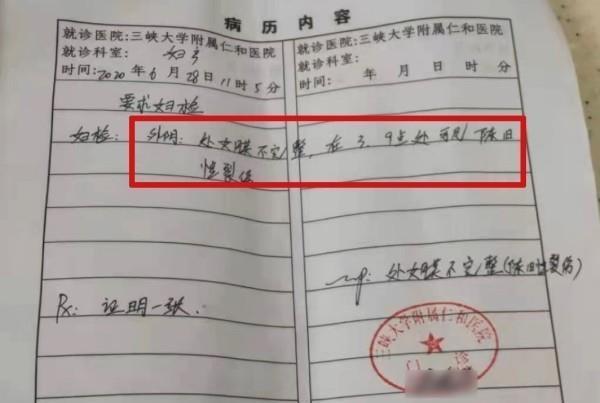 病历内容
就诊医院:三峡大学附属仁和医院
就诊科室: 妇产
时间:2020年6月28日11时5分
要求妇检
妇检: 外阴: 处女膜不完整, 在3、9点处可见陈旧
性裂伤
Rx: 证明一张.
就诊医院:三峡大学附属仁和医院
就诊科室:
时间: 年 月 日 时 分
imp: 处女膜不完整(陈旧性裂伤)
三峡大学附属仁和医院
门诊